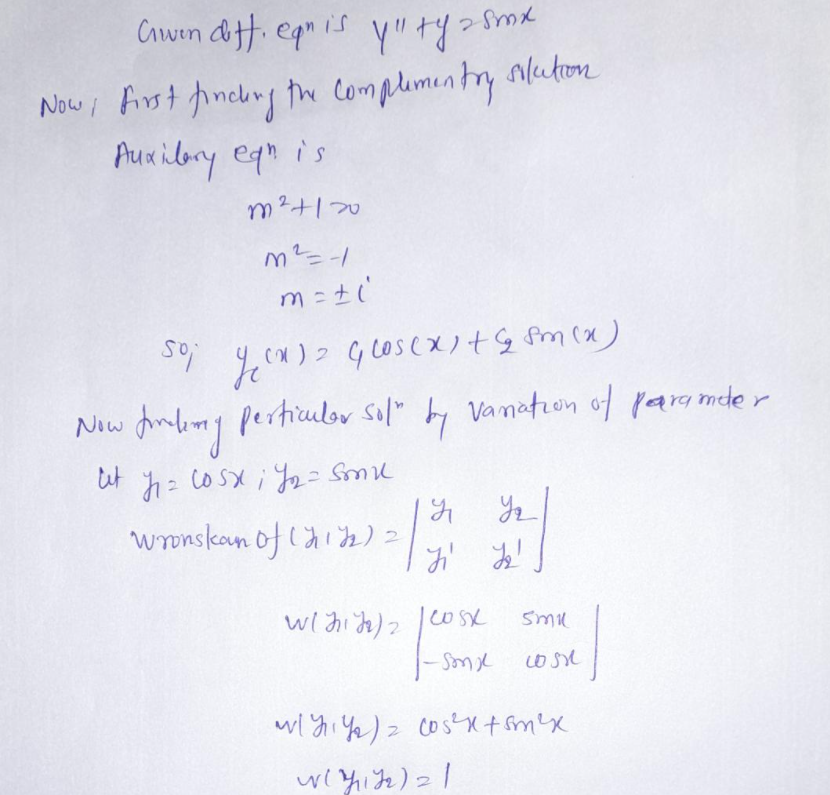 Given diff. eqn is y'' + y = sinx
Now; first finding the complimentry silution
Auxilary eqn is
m² + 1 = 0
m² = -1
m = ± i
so; y_c(x) = c₁ cos(x) + c₂ sin(x)
Now finding perticular solⁿ by variation of parameter
let y₁ = cosx ; y₂ = sinx
wronskan of (y₁, y₂) = | y₁ y₂ |
| y₁' y₂' |
w(y₁, y₂) = | cosx sinx |
| -sinx cosx |
w(y₁, y₂) = cos²x + sin²x
w(y₁, y₂) = 1